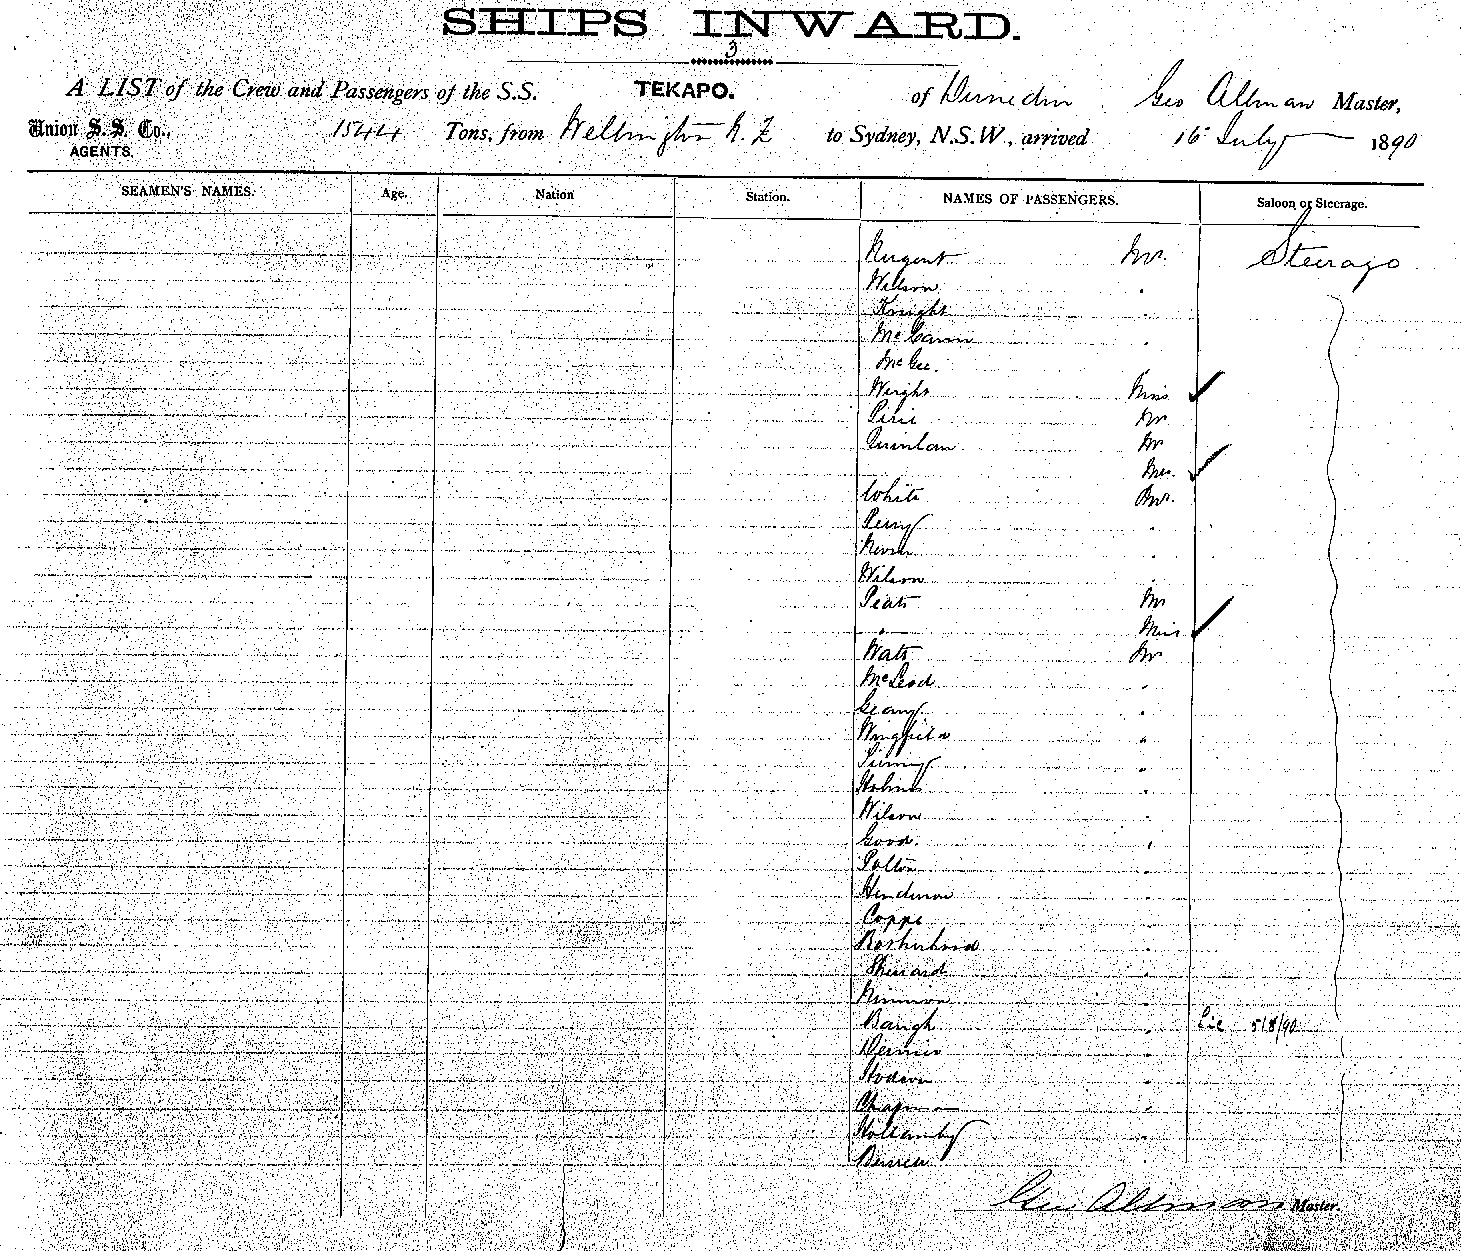 SHIPS INWARD.
3
A LIST of the Crew and Passengers of the S.S. TEKAPO. of Dunedin Geo Allman Master,
Union S.S. Co., 1544 Tons, from Wellington N.Z to Sydney, N.S.W., arrived 16 July 1890
AGENTS.
SEAMEN'S NAMES. Age. Nation Station. NAMES OF PASSENGERS. Saloon or Steerage.
Nugent Mr. Steerage
Wilson "
Knight "
McCann "
McGee. "
Wright Miss ✓
Pirie Mr
Quinlan Mr
Mrs. ✓
White Mr.
Perry "
Wilson "
Peat Mr
" Miss ✓
Watt Mr
McLeod "
Geary "
Wingfield "
"
Holmes "
Wilson "
Good. "
"
Henderson "
Copps "
Rotherhood "
Sherrard "
"
Baugh " Lic 5/8/90
"
Hodson "
Chapman "
Hollamby "
Geo Allman Master.